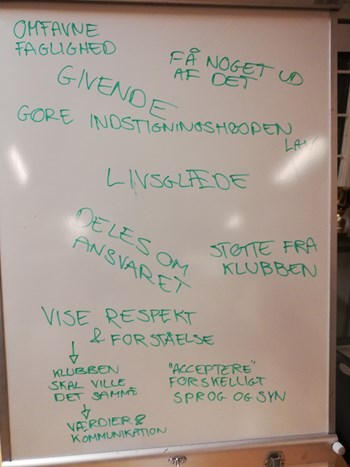 OMFAVNE
FAGLIGHED
FÅ NOGET UD
AF DET
GIVENDE
GØRE INDSTIGNINGSHØOPEN
LAV
LIVSGLÆDE
DELES OM
ANSVARET
STØTTE FRA
KLUBBEN
VISE RESPEKT
& FORSTÅELSE
KLUBBEN
SKAL VILLE
DET SAMME
"ACCEPTERE"
FORSKELLIGT
SPROG OG SYN
VÆRDIER &
KOMMUNIKATION